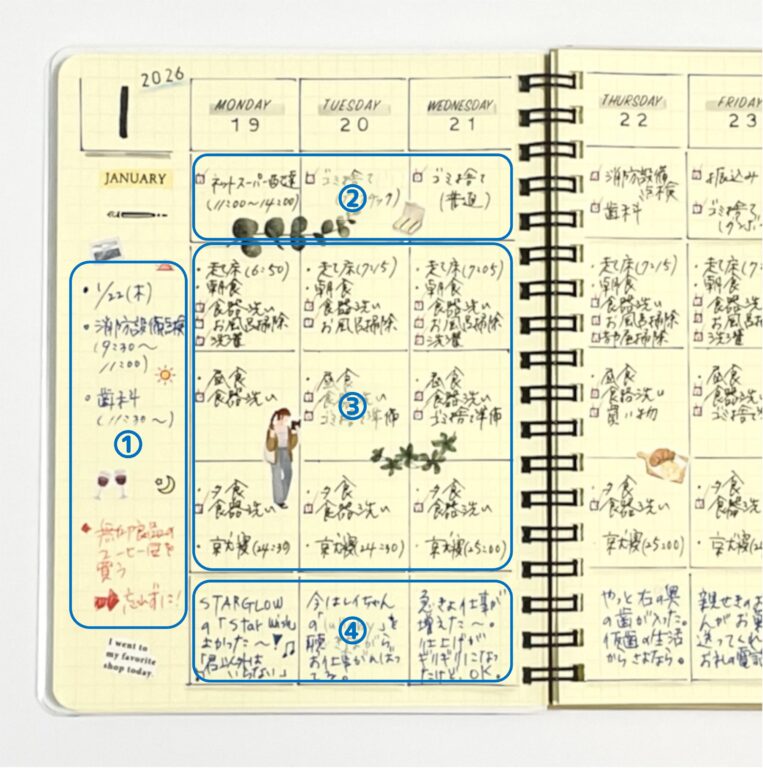 1
2026
JANUARY
①
・1/22(木)
・消防設備点検
(9:30〜
11:00)
・歯科
(11:30〜)
無印良品の
コーヒー豆を
買う
忘れずに!
I went to
my favorite
shop today.
MONDAY
19
②
ネットスーパー配達
(11:00〜14:00)
③
・起床(6:50)
・朝食
食器洗い
お風呂掃除
洗濯
・昼食
食器洗い
・夕食
食器洗い
・就寝(24:30)
④
STARGLOW
の「Star Wish」
よかった〜!
「君以外は
いらない」
TUESDAY
20
ゴミ捨て
・起床(7:15)
・朝食
食器洗い
お風呂掃除
・昼食
食器洗い
ゴミ捨て準備
・夕食
食器洗い
・就寝(24:30)
今はレイちゃん
の
を
聴きながら
お仕事がんばっ
てる。
WEDNESDAY
21
ゴミ捨て
(普通)
・起床(7:05)
・朝食
食器洗い
お風呂掃除
洗濯
・昼食
食器洗い
ゴミ捨て準備
・夕食
食器洗い
・就寝(25:00)
急きょ仕事が
増えた〜。
仕上げが
ギリギリになっ
たけど、OK。
THURSDAY
22
消防設備
点検
歯科
・起床(7:15)
・朝食
食器洗い
お風呂掃除
部屋掃除
・昼食
食器洗い
買い物
・夕食
食器洗い
・就寝(25:00)
やっと右の奥
の歯が入った。
仮歯の生活
からさよなら。
FRIDAY
23
お振込み
ゴミ捨て
・起床(7:
・朝食
食器洗い
お風呂掃
洗濯
・昼食
食器洗
ゴミ捨て
・夕食
食器洗
・就寝(2
親せきのお
んがお菓
送ってくれ
お礼の電話